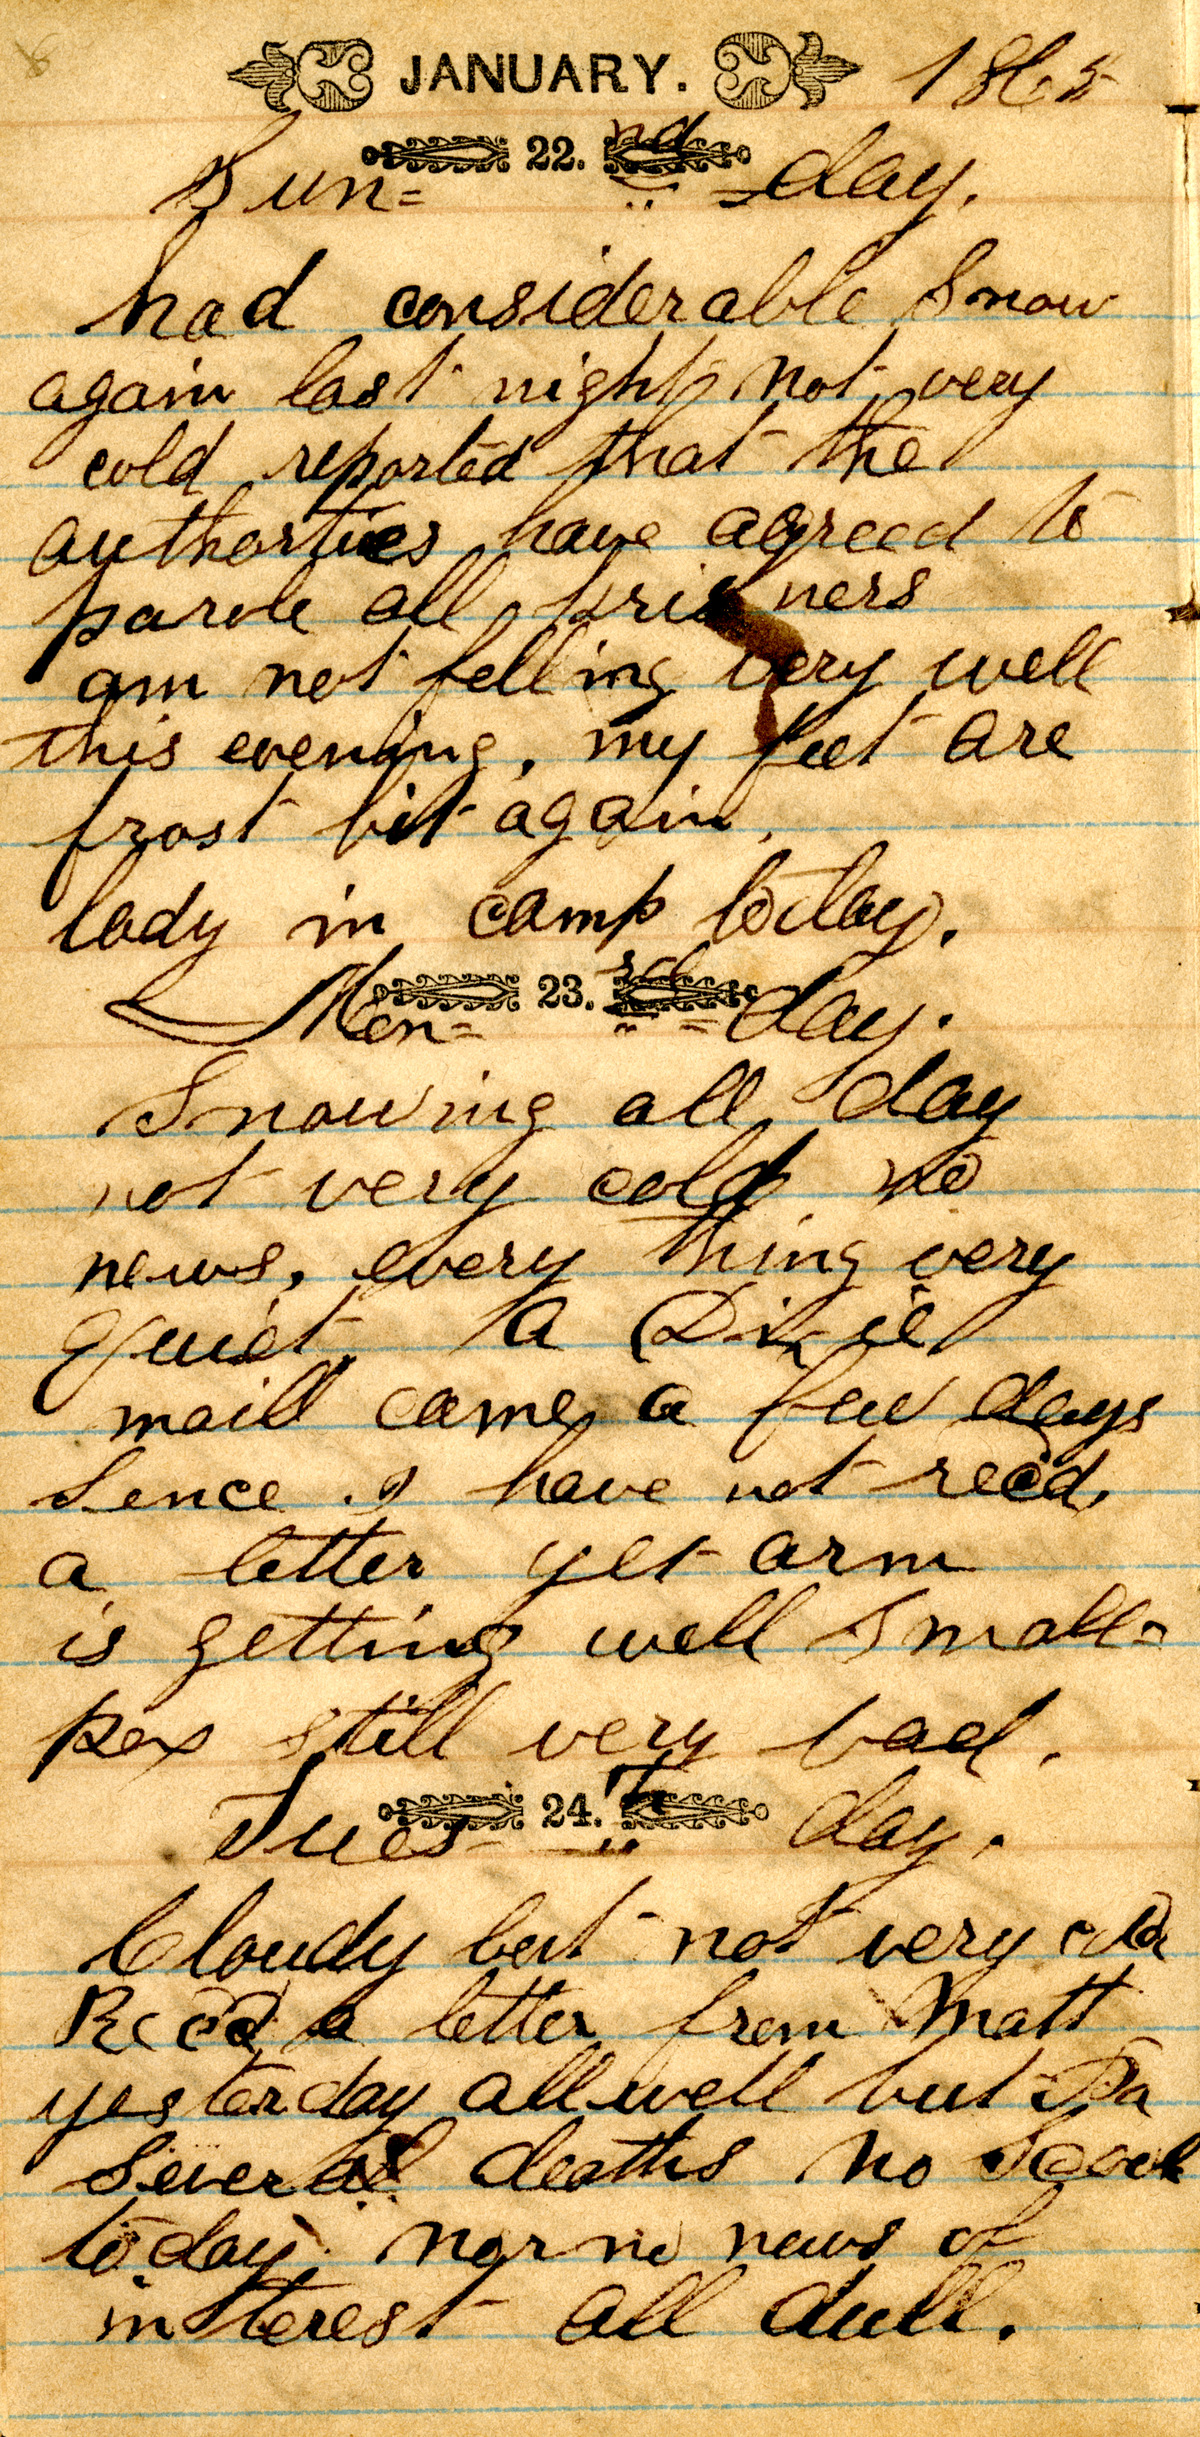 JANUARY. 1865
Sun= 22.nd =day.
had considerable Snow
again last night not very
cold reported that the
authorties have agreed to
parole all prisners
am not felling very well
this evening, my feet are
frost bit again,
lady in camp today.
Mon= 23.rd =day.
Snowing all day
not very cold no
news, every thing very
Quiet, A Dixie
maill came a few days
Sence . I have not recd,
a letter yet arm
is getting well Small=
pox still very bad.
Tues- 24.Th day.
Cloudy but not very cold
Recd a letter from Matt
yesterday all well but Pa
Several deaths No
today nor no news of
interest all dull.